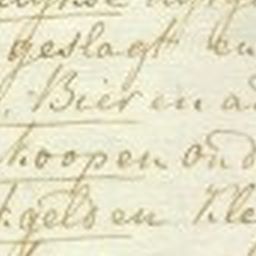 geslagt en
Bier en a
koopen oud
gelden Kle